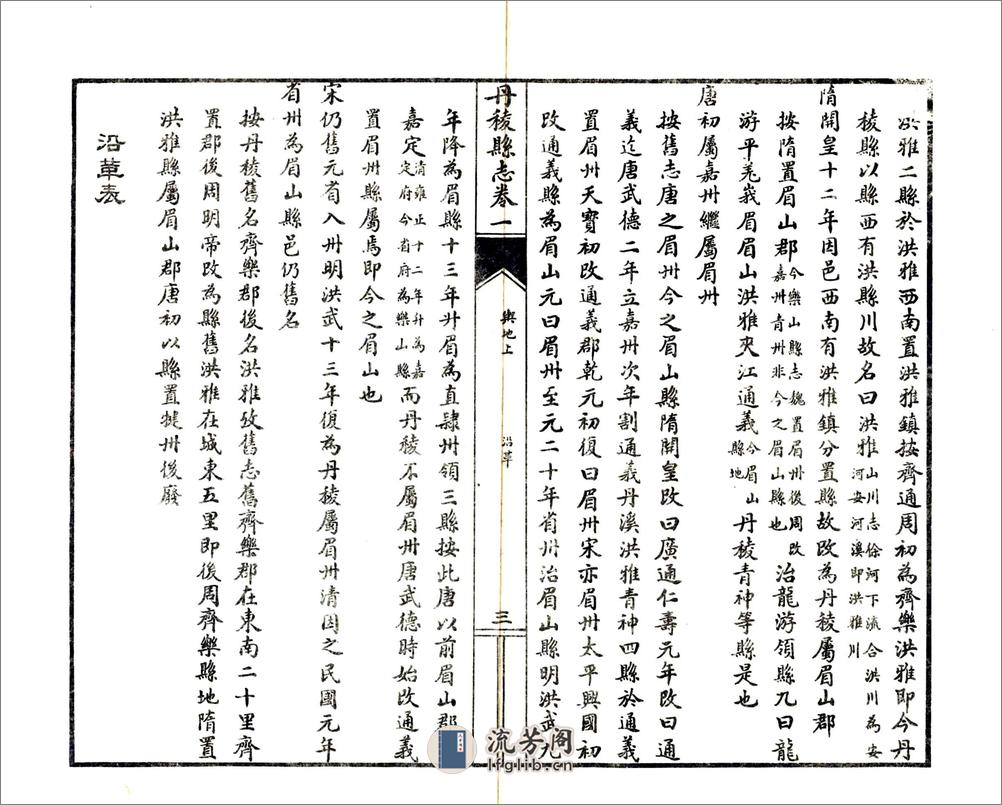 洪雅二縣於洪雅西南置洪雅鎮按齊通周初為齊樂洪雅即今丹
稜縣以縣西有洪縣川故名曰洪雅山川志徐河下流合洪川為安河安河溪即洪雅川
隋開皇十二年因邑西南有洪雅鎮分置縣故改為丹稜屬眉山郡
按隋置眉山郡今樂山縣志魏置眉州後周改嘉州青州非今之眉山縣也治龍游領縣九曰龍
游平羌峩眉眉山洪雅夾江通義今眉山縣地丹稜青神等縣是也
唐初屬嘉州繼屬眉州
按舊志唐之眉州今之眉山縣隋開皇改曰廣通仁壽元年改曰通
義迄唐武德二年立嘉州次年割通義丹溪洪雅青神四縣於通義
置眉州天寶初改通義郡乾元初復曰眉州宋亦眉州太平興國初
改通義縣為眉山元曰眉州至元二十年省州治眉山縣明洪武九
丹稜縣志卷一
輿地上
沿革
三
年降為眉縣十三年升眉為直隸州領三縣按此唐以前眉山郡
嘉定清雍正十二年升為嘉定府今省府為樂山縣而丹稜不屬眉州唐武德時始改通義
置眉州縣屬焉即今之眉山也
宋仍舊元省入州明洪武十三年復為丹稜屬眉州清因之民國元年
省州為眉山縣邑仍舊名
按丹稜舊名齊樂郡後名洪雅攷舊志舊齊樂郡在東南二十里齊
置郡後周明帝改為縣舊洪雅在城東五里即後周齊樂縣地隋置
洪雅縣屬眉山郡唐初以縣置犍州後廢
沿革表
流芳阁
lfglib.cn